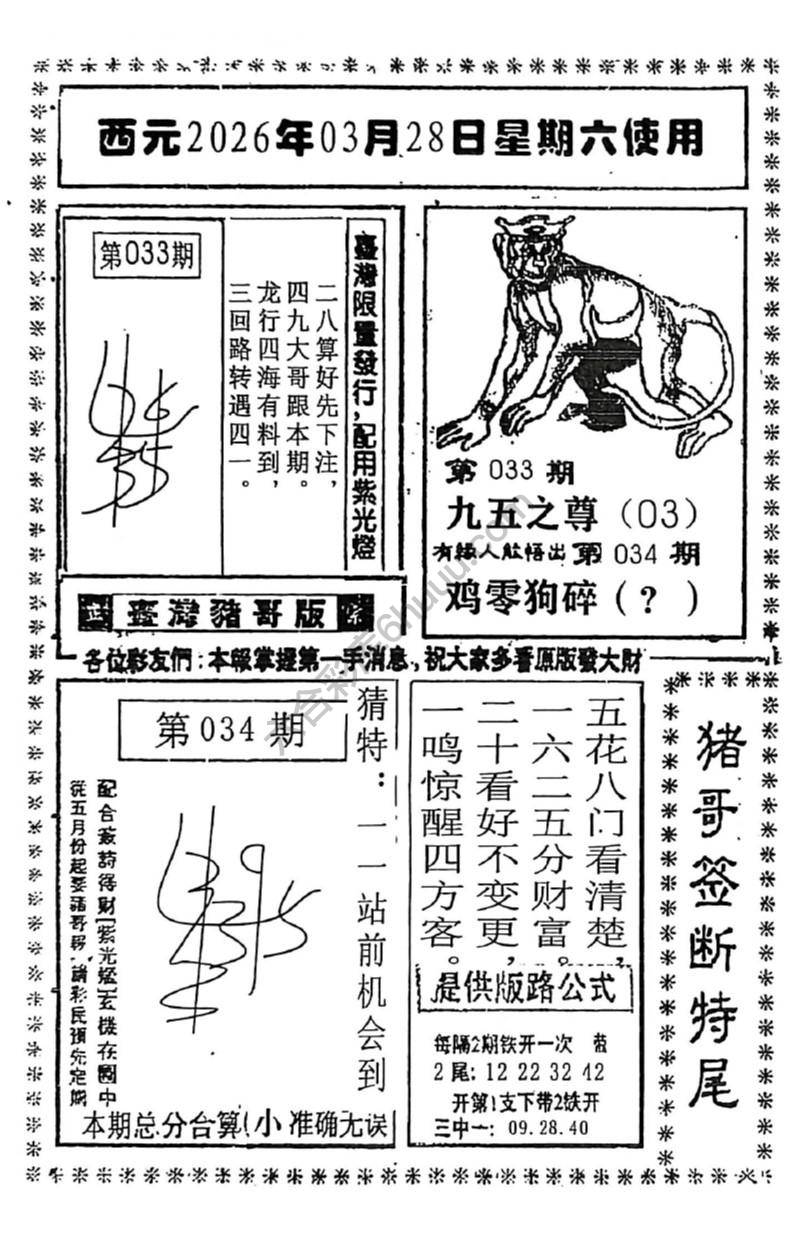 西元2026年03月28日星期六使用
第033期
二八算好先下注，
四九大哥跟本期。
龙行四海有料到，
三回路转遇四一。
臺灣限量發行，配用紫光燈
第 033 期
九五之尊（03）
有缘人能悟出 第 034 期
鸡零狗碎（？）
臺灣豬哥版
各位彩友們：本報掌握第一手消息，祝大家多看原版發大財
第 034 期
猜特：一一站前机会到
配合薮詩得财[紫光燈]玄機在圖中
從五月份起要諸哥報，請彩民預先定購
本期总分合算(小)准确无误
五花八门看清楚，
一六二五分财富。
二十看好不变更，
一鸣惊醒四方客。
提供版路公式
每隔2期铁开一次 蓝
2 尾: 12 22 32 42
开第1支下带2铁开
三中一: 09.28.40
猪哥签断特尾
六合彩库6huuu.com